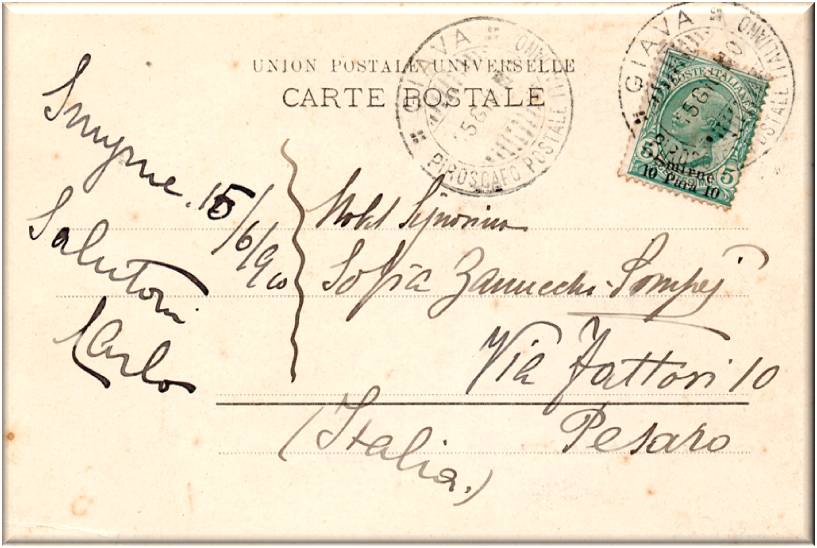 UNION POSTALE UNIVERSELLE
CARTE POSTALE
GIAVA
PIROSCAFO POSTALE ITALIANO
GIAVA
POSTALE ITALIANO
POSTE ITALIANE
5 5
Smirne
10 Para 10
Smyrne. 15/6/910
Saluton
Carlo
Nobil Signorina
Sofia Zanucchi-Pompej
Via Fattori 10
Pesaro
(Italia.)